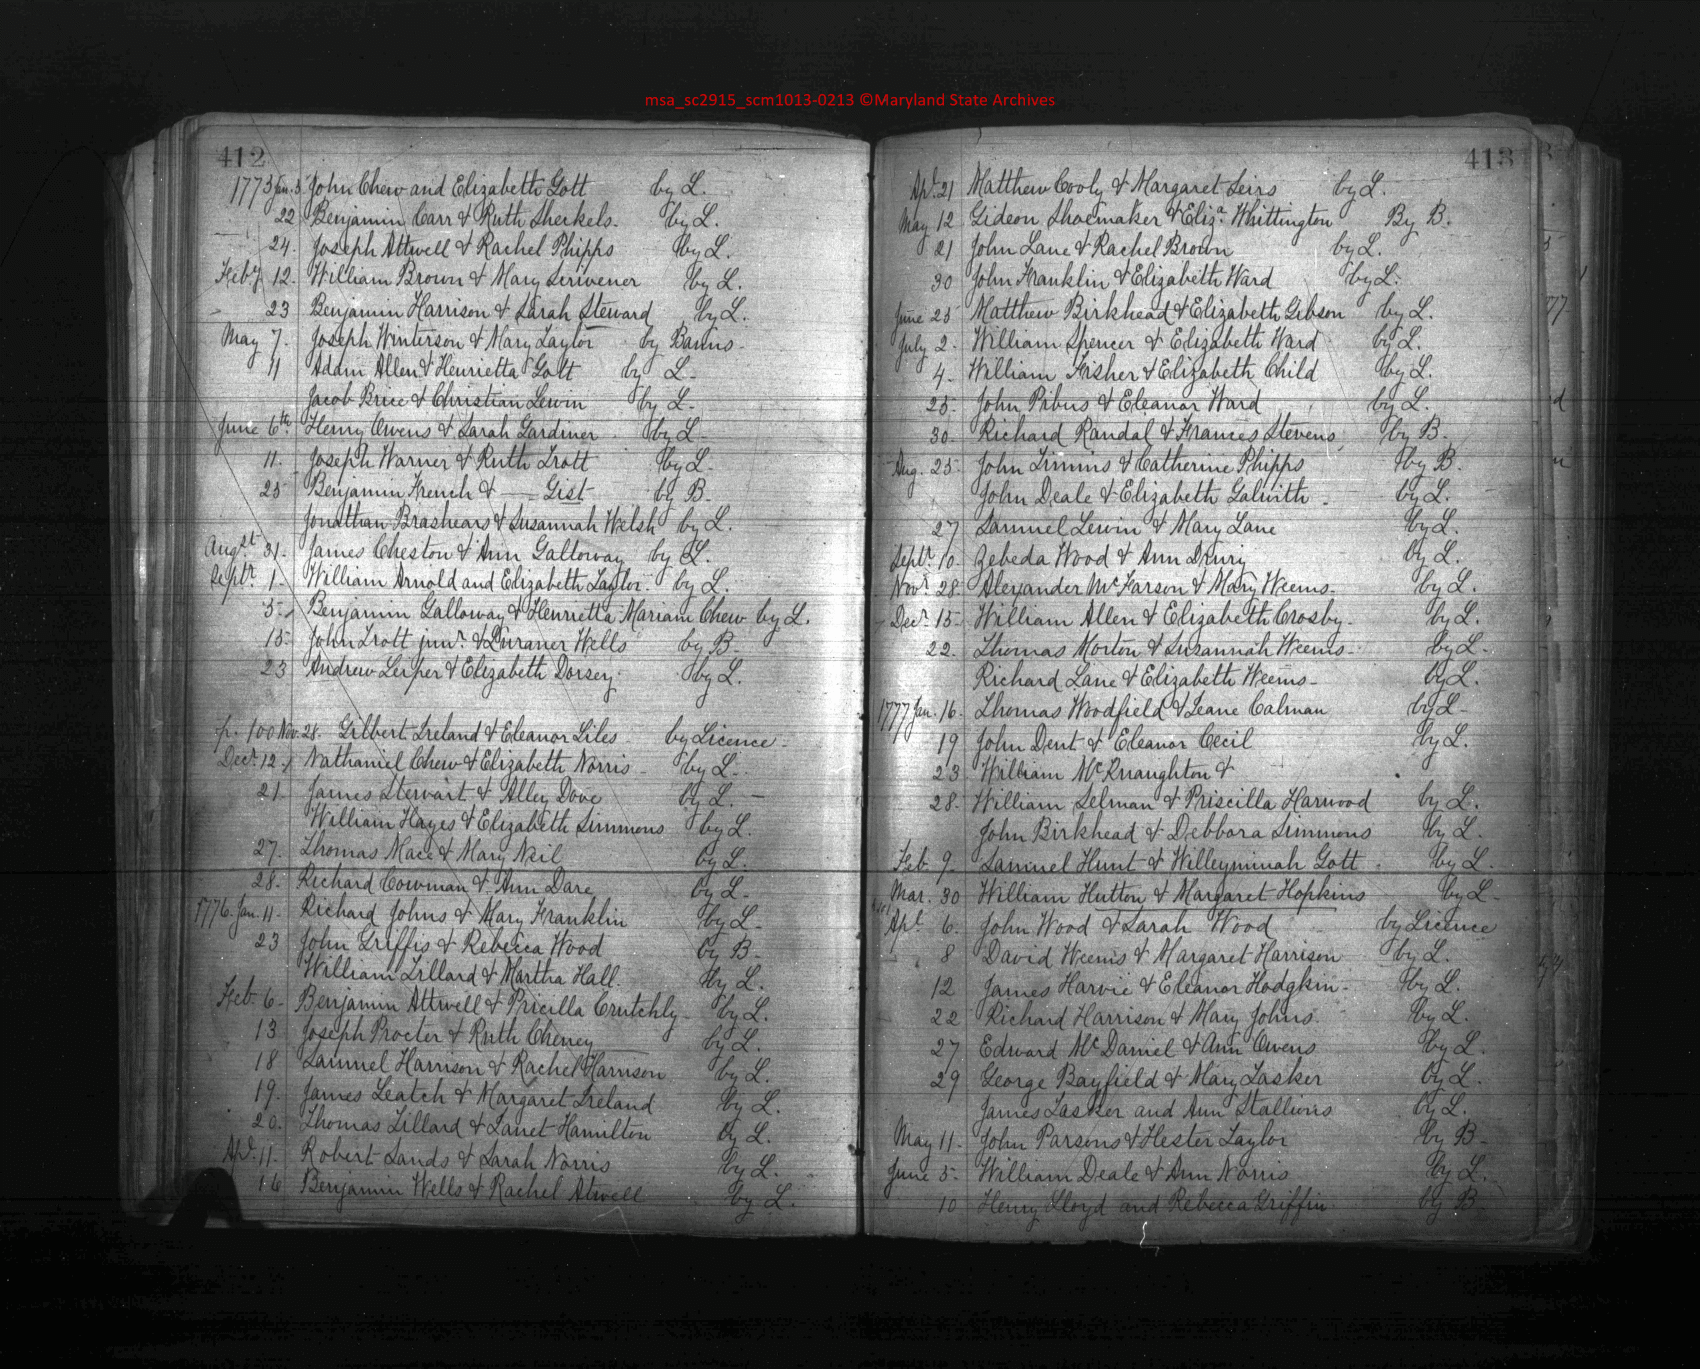 msa_sc2915_scm1013-0213 ©Maryland State Archives
412
1773 Jan. 3. John Chew and Elizabeth Gott by L.
22 Benjamin Carr & Ruth Sherkels. by L.
24. Joseph Attwell & Rachel Phipps by L.
Feby 12. William Brown & Mary Scrivener by L.
23 Benjamin Harrison & Sarah Steward by L.
May 7. Joseph Winterson & Mary Taylor by Banns
11 Adam Allen & Henrietta Gott by L.
Jacob Brice & Christian Lewin by L.
June 6th Henry Owens & Sarah Gardiner by L.
11. Joseph Warner & Ruth Trott by L.
25 Benjamin French & —— Gist by B.
Jonathan Brashears & Susannah Welsh by L.
Augst 31. James Cheston & Ann Galloway by L.
Septr 1. William Arnold and Elizabeth Taylor. by L.
5. Benjamin Galloway & Henrietta Mariam Chew by L.
15. John Trott junr. & Luraner Wells by B.
23 Andrew Leiper & Elizabeth Dorsey. by L.
p. 100 Nov. 28. Gilbert Ireland & Eleanor Liles by Licence.
Decr 12. Nathaniel Chew & Elizabeth Norris by L.
21. James Stewart & Alley Dove by L.
William Hayes & Elizabeth Simmons by L.
27. Thomas Mace & Mary Neil by L.
28. Richard Cowman & Ann Dare by L.
1776. Jan. 11. Richard Johns & Mary Franklin by L.
23 John Griffis & Rebecca Wood by B.
William Tillard & Martha Hall. by L.
Feb. 6. Benjamin Attwell & Pricilla Crutchly by L.
13 Joseph Procter & Ruth Cheney by L.
18 Samuel Harrison & Rachel Harrison by L.
19. James Leatch & Margaret Ireland by L.
20. Thomas Tillard & Janet Hamilton by L.
Apl. 11. Robert Sands & Sarah Norris by L.
16 Benjamin Wells & Rachel Atwell by L.
413
Apl. 21 Matthew Cooly & Margaret Seirs by L.
May 12 Gideon Shoemaker & Eliza. Whittington By B.
21 John Lane & Rachel Brown by L.
30 John Franklin & Elizabeth Ward by L.
June 25 Matthew Birkhead & Elizabeth Gibson by L.
July 2. William Spencer & Elizabeth Ward by L.
4. William Fisher & Elizabeth Child by L.
25. John Pibus & Eleanor Ward by L.
30. Richard Randal & Frances Stevens by B.
Aug. 25. John Timms & Catherine Phipps by B.
John Deale & Elizabeth Galwith by L.
27 Samuel Lewin & Mary Lane by L.
Septr. 10. Zebeda Wood & Ann Drury by L.
Novr. 28. Alexander McFarson & Mary Weems. by L.
Decr. 15. William Allen & Elizabeth Crosby. by L.
22. Thomas Morton & Susannah Weems. by L.
Richard Lane & Elizabeth Weems by L.
1777 Jan. 16. Thomas Woodfield & Jeane Calman by L.
19 John Dent & Eleanor Cecil by L.
23 William McKnaughton &
28. William Selman & Priscilla Harwood by L.
John Birkhead & Debbora Simmons by L.
Feb. 9. Samuel Hunt & Willeyminah Gott by L.
Mar. 30 William Hutton & Margaret Hopkins by L.
Apl. 6. John Wood & Sarah Wood by Licence
8 David Weems & Margaret Harrison by L.
12 James Harvie & Eleanor Hodgkin. by L.
22 Richard Harrison & Mary Johns. by L.
27. Edward McDaniel & Ann Owens by L.
29 George Bayfield & Mary Tasker by L.
James Tasker and Ann Stallions by L.
May 11. John Parsons & Hester Taylor by B.
June 5. William Deale & Ann Norris by L.
10 Henry Lloyd and Rebecca Griffin by B.